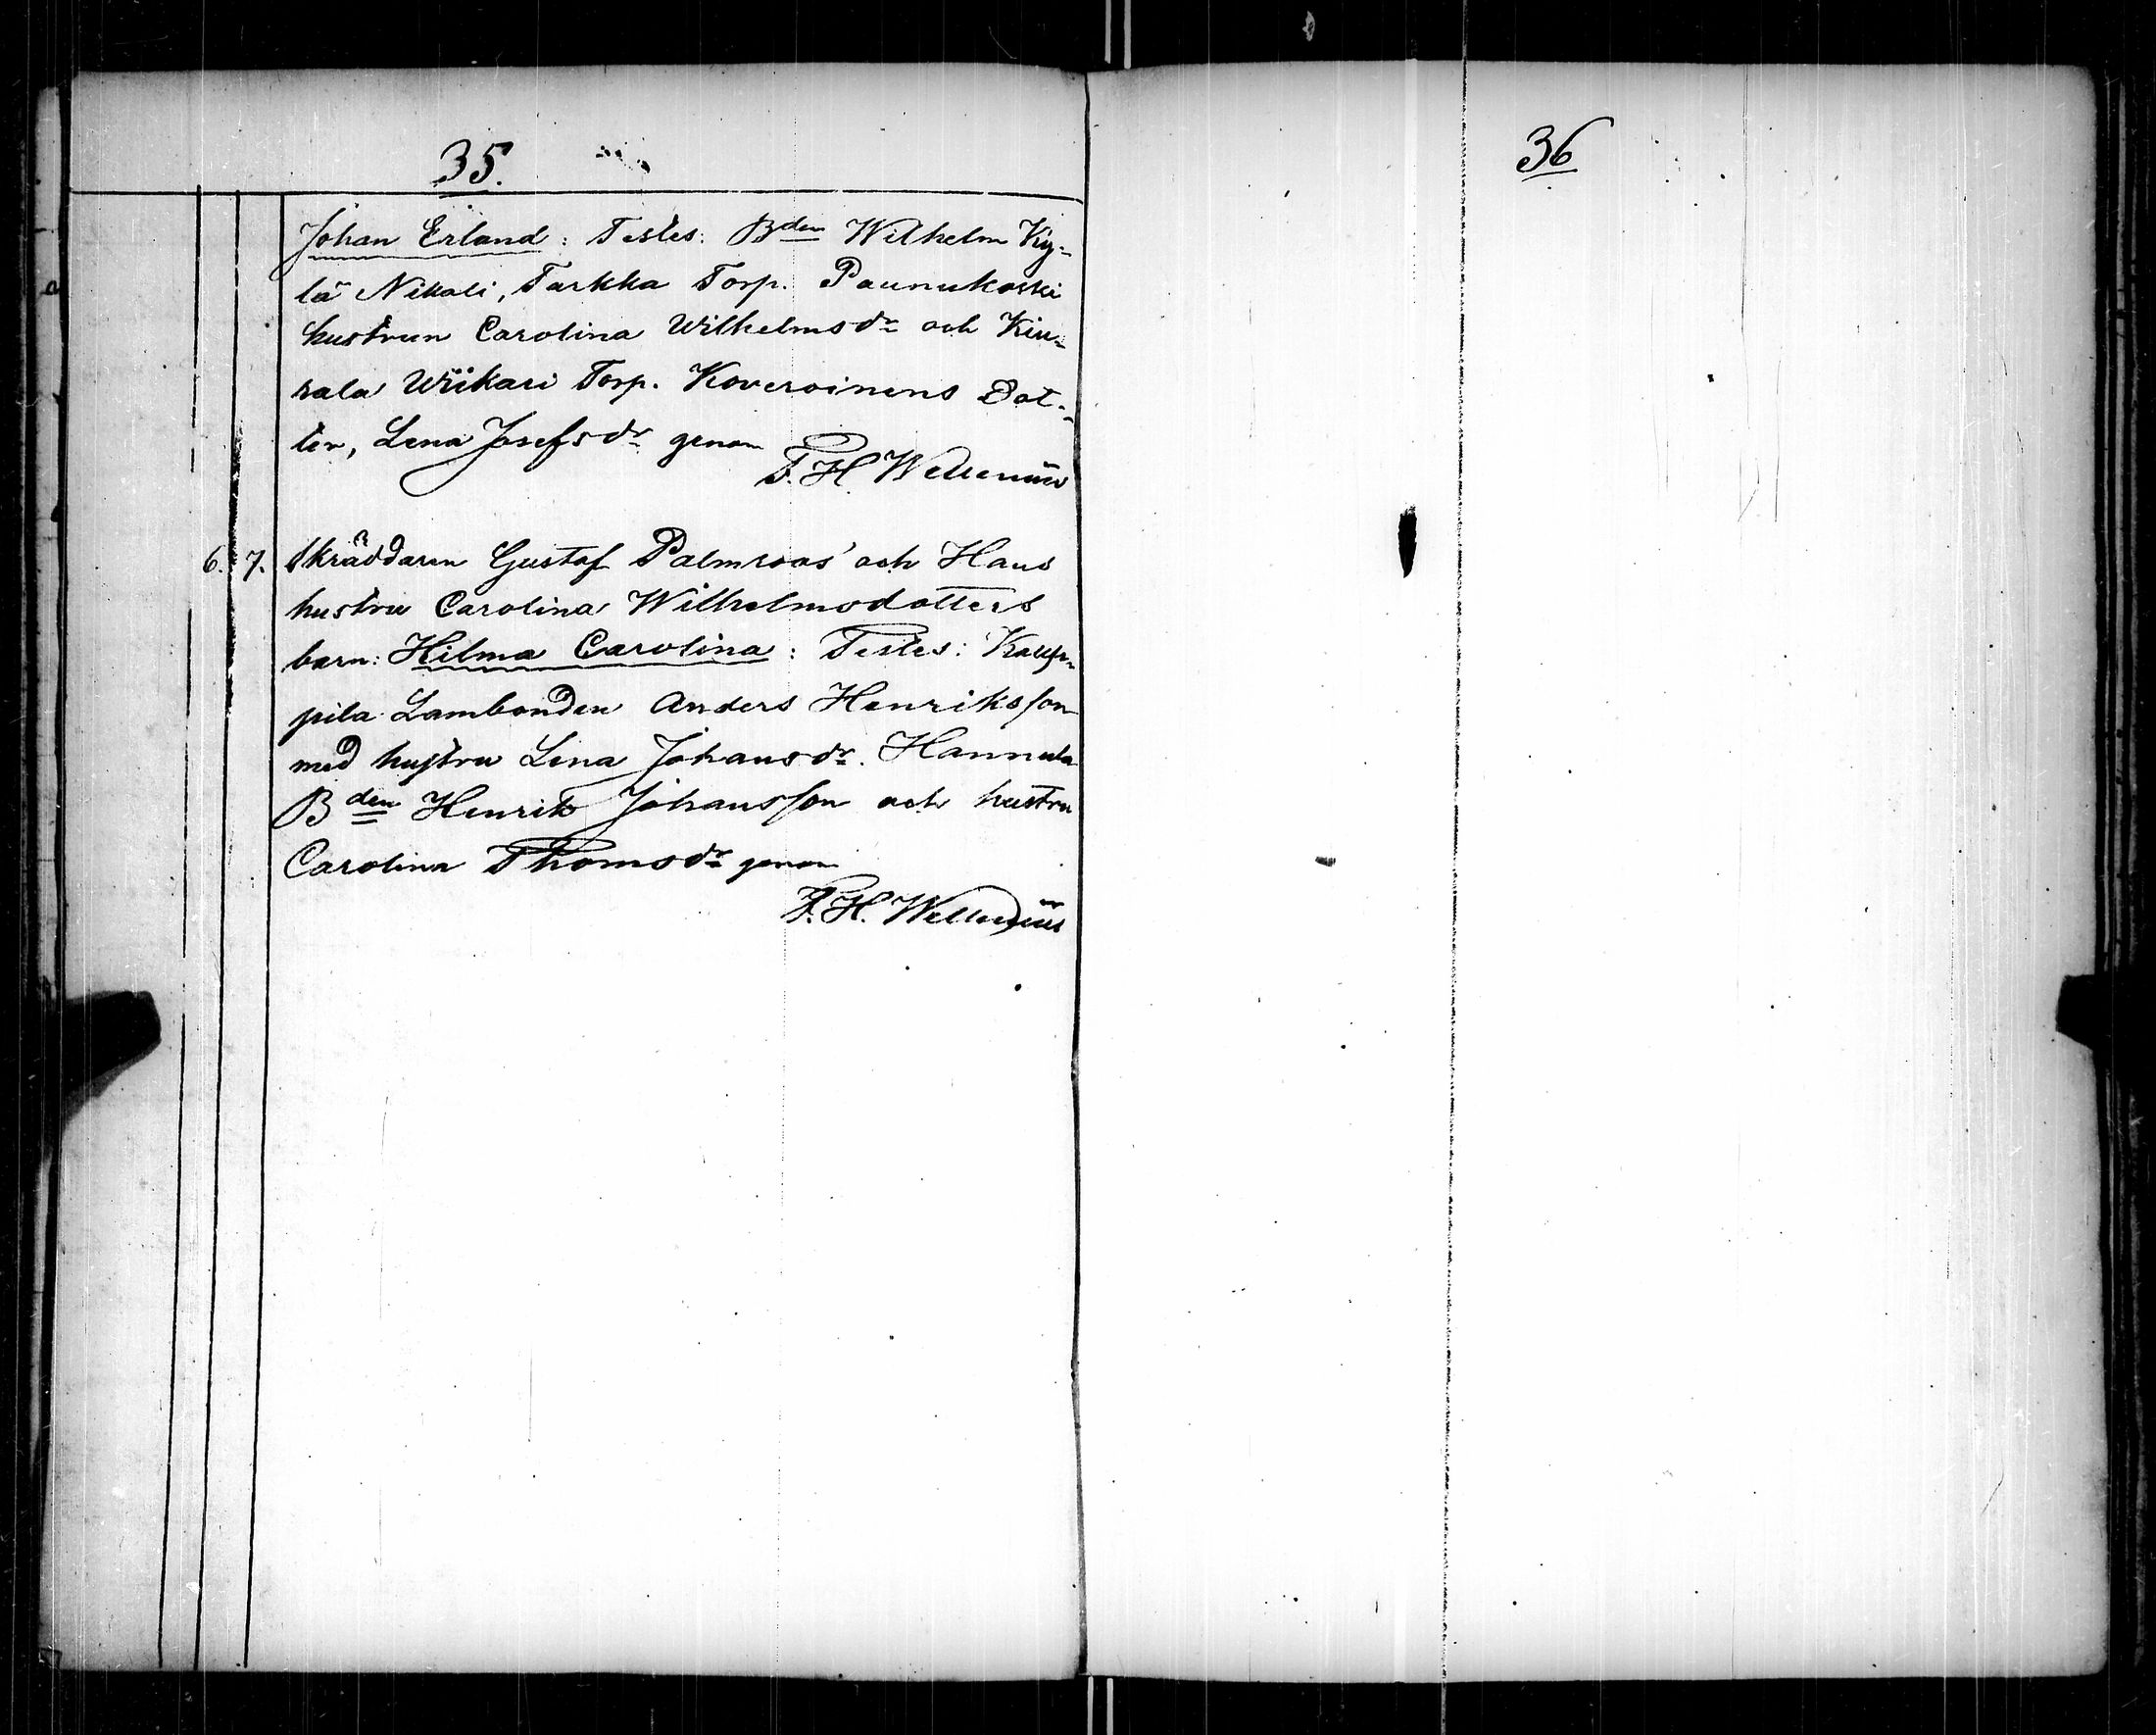 35.
Johan Erland: Testes: Bden Wilhelm Ky-
lä Nikali, Tarkka Torp. Paunukoski
hustrun Carolina Wilhelmsdr och Kiu-
kala Wiikari Torp. Koveroinens Dot-
ter, Lena Josefsdr genom
F. H. Wellenius
6. 7. Skräddaren Gustaf Palmroos' och Hans
hustru Carolina Wilhelmsdotters
barn: Hilma Carolina: Testes: Kaup-
pila Lambonden Anders Henriksson
med hustru Lena Johansdr. Hannula
Bden Henrik Johansson och hustru
Carolina Thomsdr genom
F. H. Wellenius
36